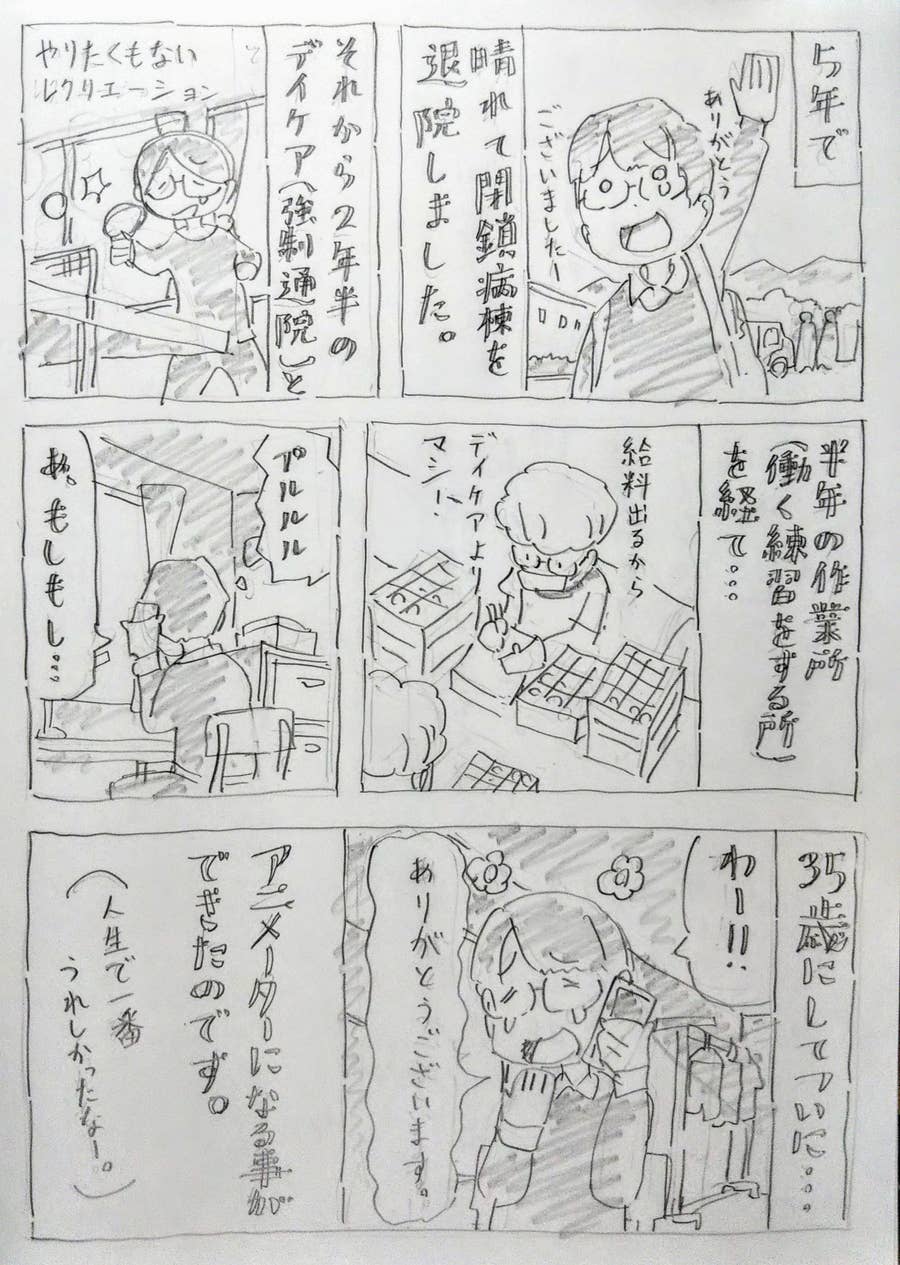 5年で
ありがとう
ございましたー
晴れて閉鎖病棟を
退院しました。
それから2年半の
デイケア(強制通院)と
やりたくもない
レクリエーション
半年の作業所
(働く練習をする所)
を経て…
給料出るから
デイケアより
マシ!
プルルルル
あ、もしもし…
35歳にしてついに…
わー!!
ありがとうございます。
アニメーターになる事が
できたのです。
(人生で一番
うれしかったなー。)